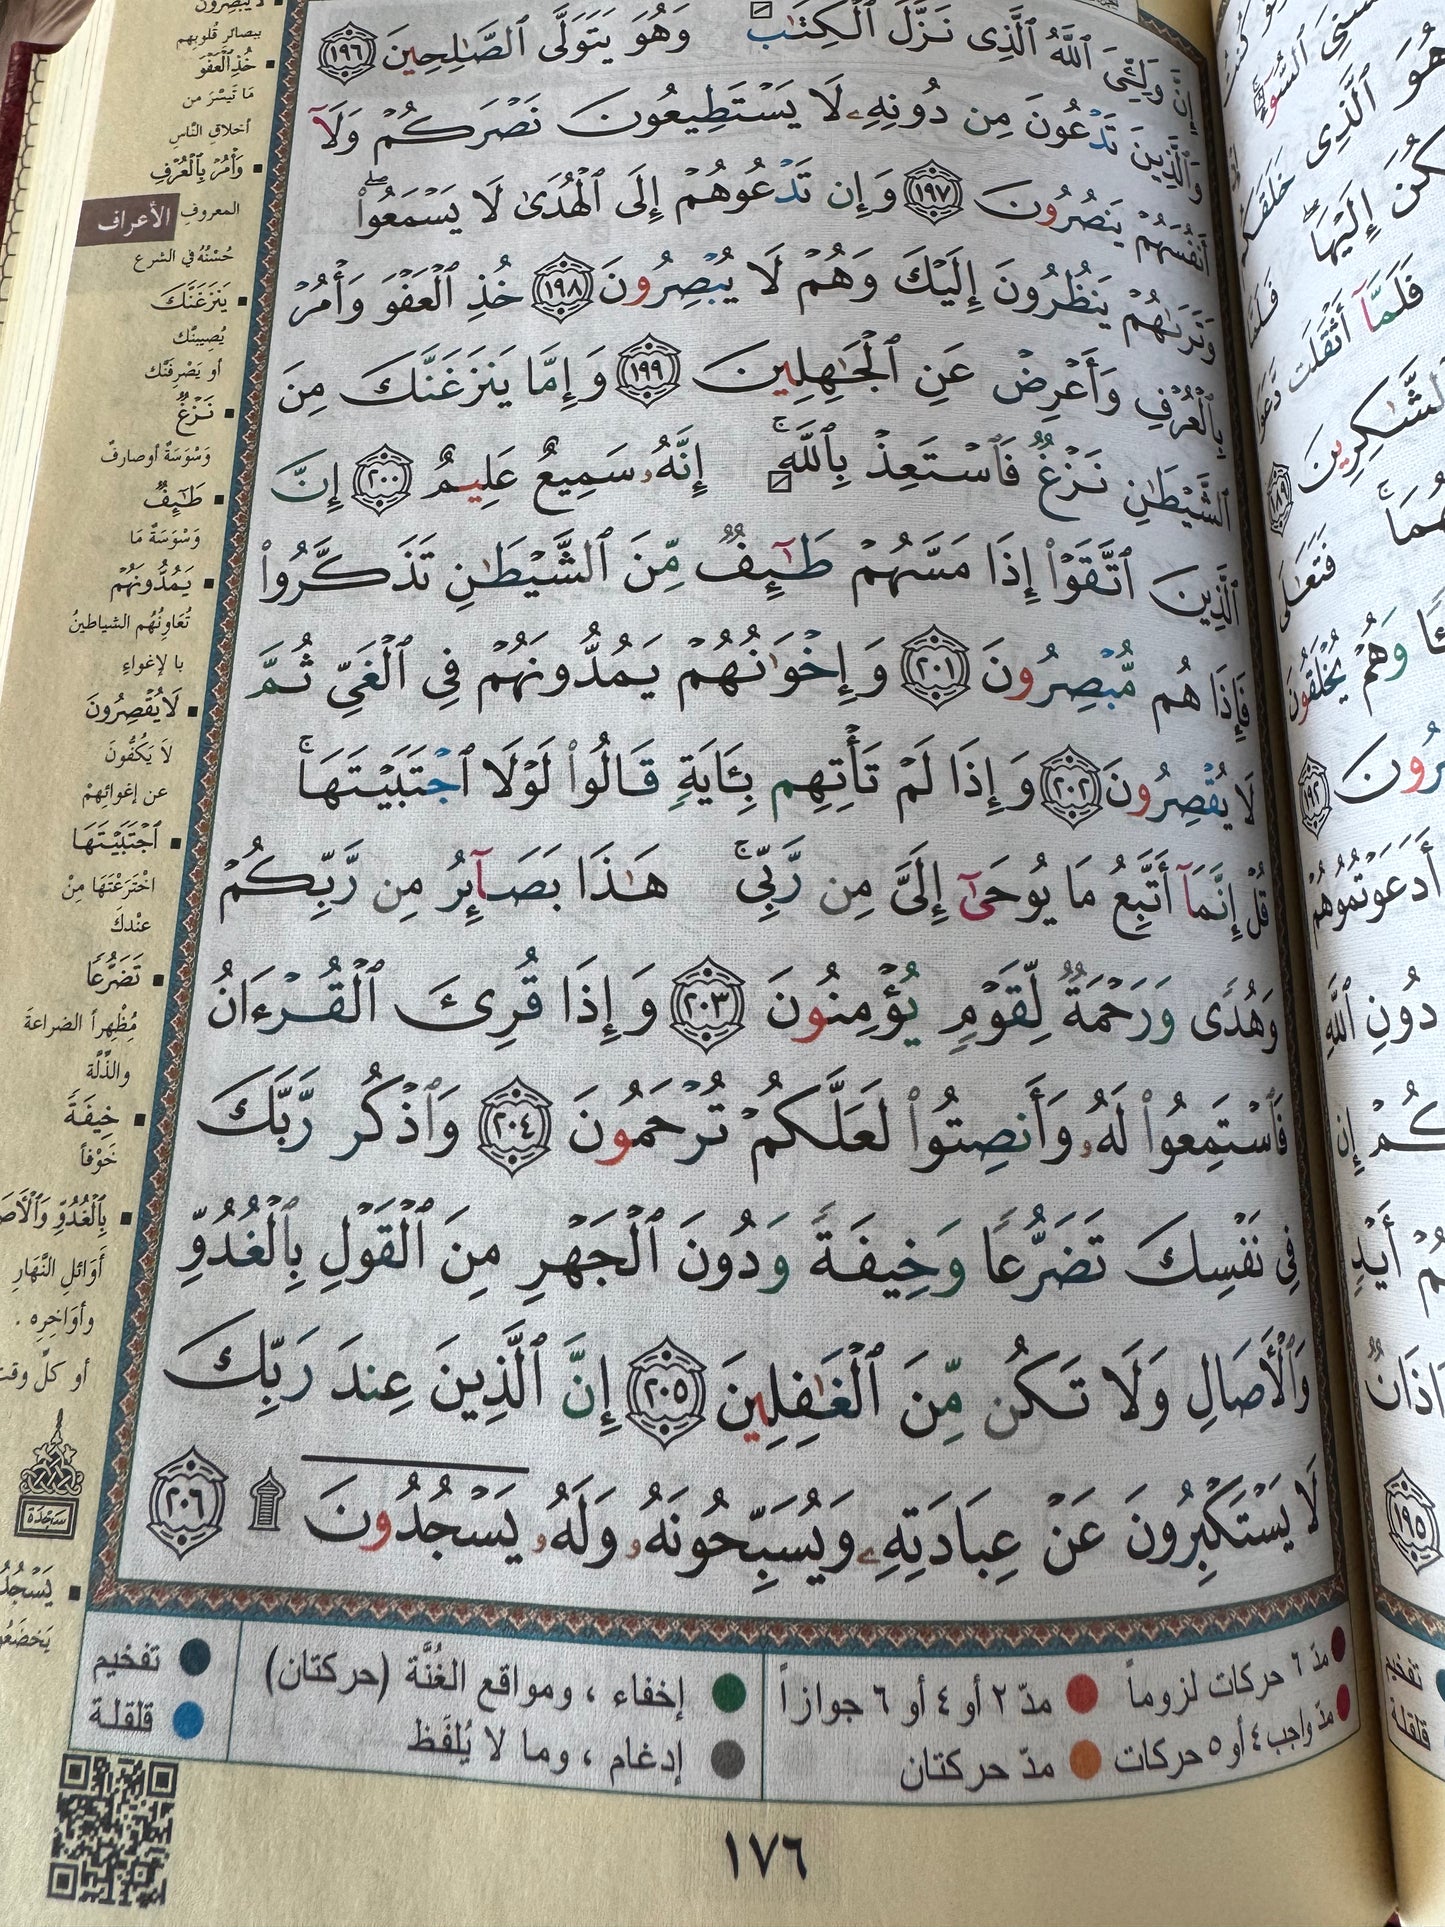 إِنَّ وَلِـِّۧيَ ٱللَّهُ ٱلَّذِى نَزَّلَ ٱلْكِتَـٰبَ ۖ وَهُوَ يَتَوَلَّى ٱلصَّـٰلِحِينَ ١٩٦
وَٱلَّذِينَ تَدْعُونَ مِن دُونِهِۦ لَا يَسْتَطِيعُونَ نَصْرَكُمْ وَلَآ
أَنفُسَهُمْ يَنصُرُونَ ١٩٧ وَإِن تَدْعُوهُمْ إِلَى ٱلْهُدَىٰ لَا يَسْمَعُوا۟ ۖ
وَتَرَىٰهُمْ يَنظُرُونَ إِلَيْكَ وَهُمْ لَا يُبْصِرُونَ ١٩٨ خُذِ ٱلْعَفْوَ وَأْمُرْ
بِٱلْعُرْفِ وَأَعْرِضْ عَنِ ٱلْجَـٰهِلِينَ ١٩٩ وَإِمَّا يَنزَغَنَّكَ مِنَ
ٱلشَّيْطَـٰنِ نَزْغٌ فَٱسْتَعِذْ بِٱللَّهِ ۚ إِنَّهُۥ سَمِيعٌ عَلِيمٌ ٢٠٠ إِنَّ
ٱلَّذِينَ ٱتَّقَوْا۟ إِذَا مَسَّهُمْ طَـٰٓئِفٌ مِّنَ ٱلشَّيْطَـٰنِ تَذَكَّرُوا۟
فَإِذَا هُم مُّبْصِرُونَ ٢٠١ وَإِخْوَٰنُهُمْ يَمُدُّونَهُمْ فِى ٱلْغَىِّ ثُمَّ
لَا يُقْصِرُونَ ٢٠٢ وَإِذَا لَمْ تَأْتِهِم بِـَٔايَةٍ قَالُوا۟ لَوْلَا ٱجْتَبَيْتَهَا ۚ
قُلْ إِنَّمَآ أَتَّبِعُ مَا يُوحَىٰٓ إِلَىَّ مِن رَّبِّى ۚ هَـٰذَا بَصَآئِرُ مِن رَّبِّكُمْ
وَهُدًى وَرَحْمَةٌ لِّقَوْمٍ يُؤْمِنُونَ ٢٠٣ وَإِذَا قُرِئَ ٱلْقُرْءَانُ
فَٱسْتَمِعُوا۟ لَهُۥ وَأَنصِتُوا۟ لَعَلَّكُمْ تُرْحَمُونَ ٢٠٤ وَٱذْكُر رَّبَّكَ
فِى نَفْسِكَ تَضَرُّعًا وَخِيفَةً وَدُونَ ٱلْجَهْرِ مِنَ ٱلْقَوْلِ بِٱلْغُدُوِّ
وَٱلْـَٔاصَالِ وَلَا تَكُن مِّنَ ٱلْغَـٰفِلِينَ ٢٠٥ إِنَّ ٱلَّذِينَ عِندَ رَبِّكَ
لَا يَسْتَكْبِرُونَ عَنْ عِبَادَتِهِۦ وَيُسَبِّحُونَهُۥ وَلَهُۥ يَسْجُدُونَ ۩ ٢٠٦
ببصائر قلوبهم
خُذِ ٱلْعَفْوَ
مَا تَيَسَّرَ من
أخلاقِ النَّاسِ
وَأْمُرْ بِٱلْعُرْفِ
المعروفِ
حُسْنُهُ في الشرع
الأعراف
يَنزَغَنَّكَ
يُصِيبنَّك
أو يَصْرِفنَّك
نَزْغٌ
وَسْوَسَةٌ أو صارفٌ
طَـٰٓئِفٌ
وَسْوَسَةٌ مَا
يَمُدُّونَهُمْ
تُعَاوِنُهُم الشياطينُ
بالإغواءِ
لَا يُقْصِرُونَ
لَا يَكُفُّونَ
عن إغوائِهِمْ
ٱجْتَبَيْتَهَا
اخْتَرَعْتَهَا مِنْ
عنْدكَ
تَضَرُّعًا
مُظْهِراً الضراعةَ
والذِّلَّة
خِيفَةً
خَوْفاً
بِٱلْغُدُوِّ
أَوَائلِ النَّهَارِ
وأواخِرِه .
أو كلّ
سجدة
مدّ ٦ حركات لزوماً
مدّ ٢ أو ٤ أو ٦ جوازاً
إخفاء ، ومواقع الغُنَّة (حركتان)
تفخيم
مدّ واجب ٤ أو ٥ حركات
مدّ حركتان
إدغام ، وما لا يُلفَظ
قلقلة
١٧٦